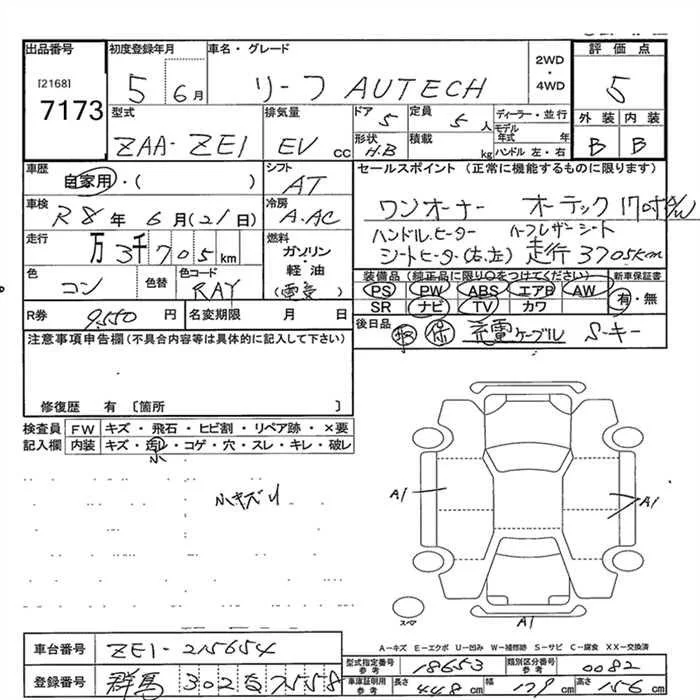 出品番号 初度登録年月 車名・グレード 評価点
[2168] 7173 5 6月 リーフ AUTECH 2WD・4WD 5
型式 排気量 ドア 5 定員 5人 ディーラー・並行 外装 内装
ZAA-ZE1 EV cc 形状 H.B 積載 kg モデル年式 年 ハンドル 左・右 B B
車歴 シフト セールスポイント (正常に機能するものに限ります)
自家用・( ) AT
車検 冷房 ワンオーナー オーテック 17吋AW
R8年 6月(21日) A.AC ハンドルヒーター ハーフレザーシート
走行 燃料 シートヒーター(右、左) 走行 3705km
万 3千 7 0 5 km ガソリン・軽油
色 色替 色コード 装備品 (純正品に限り〇をつけてください) 新車保証書
コン RAY (電気) PS PW ABS エアB AW 有・無
SR ナビ TV カワ
R券 9.550円 名変期限 月 日 後日品 取 保 充電ケーブル S-キー
注意事項申告欄 (不具合内容等は具体的に記入して下さい)
修復歴 有 〔箇所 〕
検査員 FW キズ・飛石・ヒビ割・リペア跡・×要
記入欄 内装 キズ・汚レ・コゲ・穴・スレ・キレ・破レ
小
小キズ
A1 A1
スペア A1
A-キズ E-エクボ U-凹み W-補修跡 S-サビ C-腐食 XX-交換済
車台番号 ZE1-215654
型式指定番号 参考 18653 類別区分番号 参考 0082
登録番号 群馬 302 な 7558 車庫証明用 参考 長さ 448cm 幅 179cm 高さ 156cm